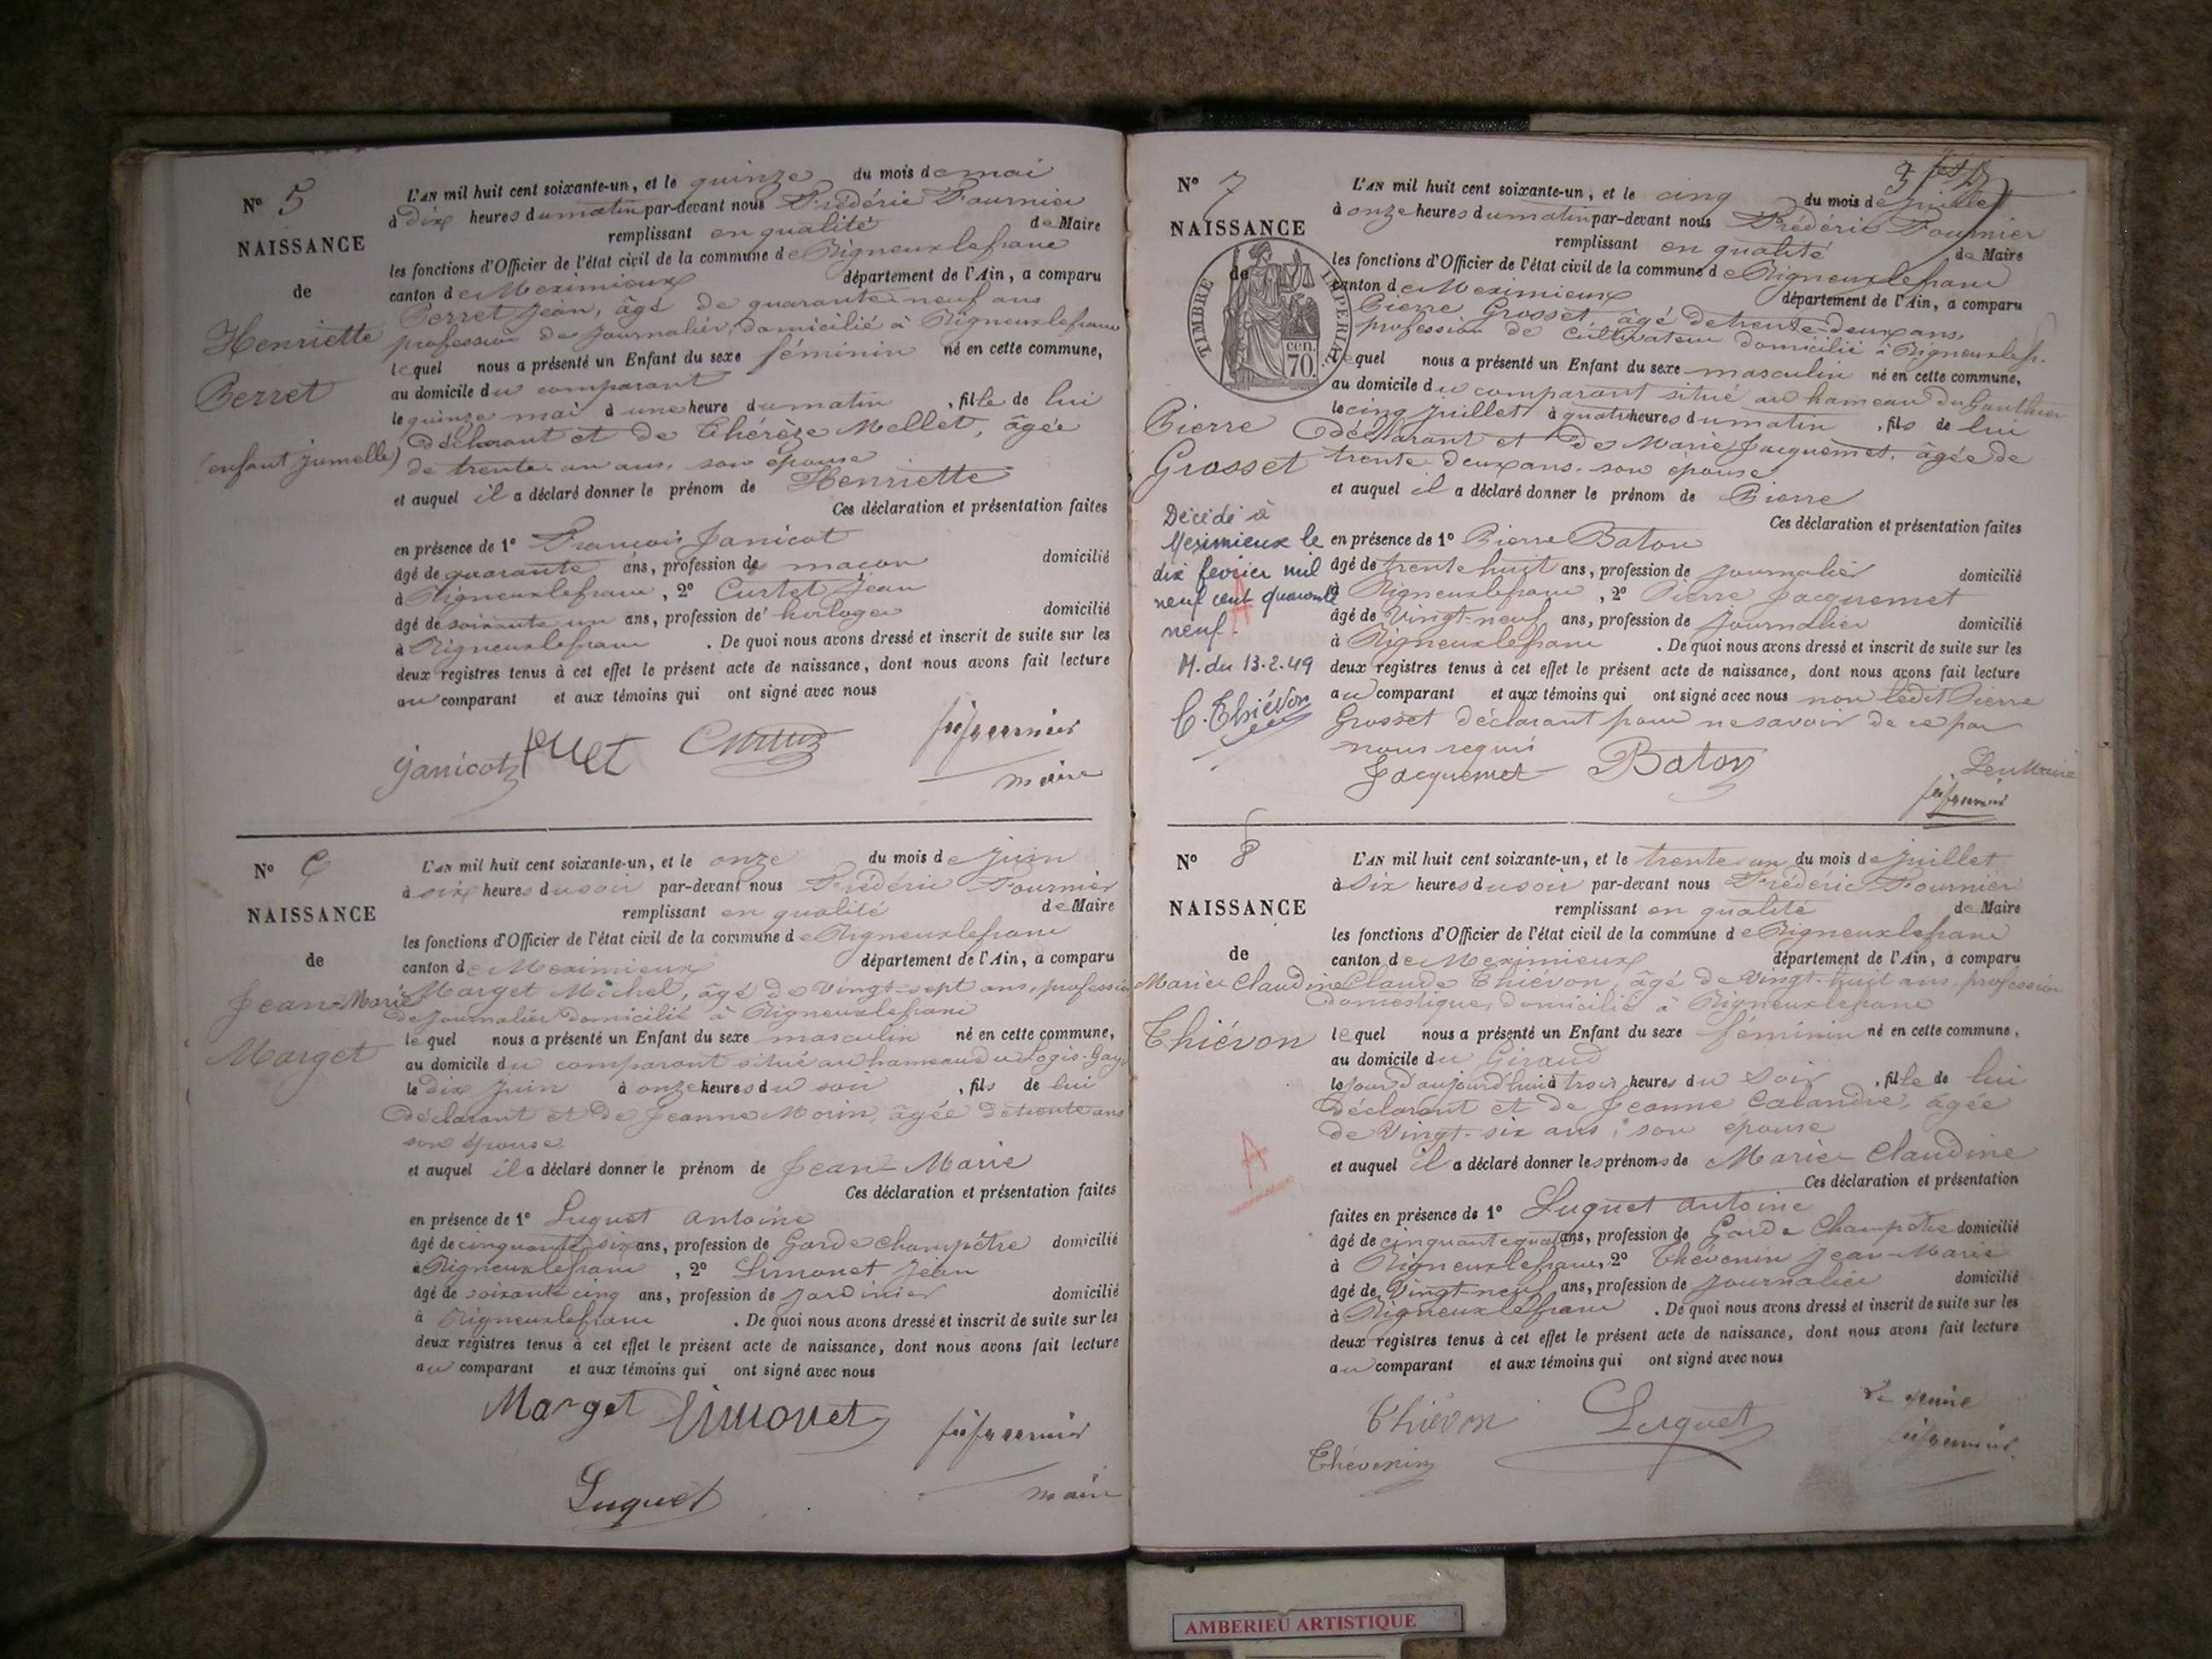 N° 5
NAISSANCE
de
Henriette
Perret
(enfant jumelle)
L'AN mil huit cent soixante-un, et le quinze du mois de mai
à dix heures du matin par-devant nous Frédéric Fournier
remplissant en qualité de Maire
les fonctions d'Officier de l'état civil de la commune de Rigneuxlefranc
canton de Meximieux département de l'Ain, a comparu
Perret Jean, âgé de quarante-neuf ans
profession de journalier, domicilié à Rigneuxlefranc
lequel nous a présenté un Enfant du sexe féminin né en cette commune,
au domicile du comparant
le quinze mai à une heure du matin , fille de lui
déclarant et de Thérèze Mellet, âgée
de trente-un ans, son épouse
et auquel il a déclaré donner le prénom de Henriette
Ces déclaration et présentation faites
en présence de 1° François Janicot
âgé de quarante ans, profession de macon domicilié
à Rigneuxlefranc, 2° Curtet Jean
âgé de soixante un ans, profession de horloger domicilié
à Rigneuxlefranc . De quoi nous avons dressé et inscrit de suite sur les
deux registres tenus à cet effet le présent acte de naissance, dont nous avons fait lecture
au comparant et aux témoins qui ont signé avec nous
Janicot
maire
N° 6
NAISSANCE
de
Jean-Marie
Marget
L'AN mil huit cent soixante-un, et le onze du mois de juin
à six heures du soir par-devant nous Frédéric Fournier
remplissant en qualité de Maire
les fonctions d'Officier de l'état civil de la commune de Rigneuxlefranc
canton de Meximieux département de l'Ain, a comparu
Marget Michel, âgé de Vingt-sept ans, profession
de journalier domicilié à Rigneuxlefranc
lequel nous a présenté un Enfant du sexe masculin né en cette commune,
au domicile du comparant situé au hameau du Logis-Gay
le dix juin à onze heures du soir , fils de lui
déclarant et de Jeanne Morin, âgée de trente ans
son épouse
et auquel il a déclaré donner le prénom de Jean-Marie
Ces déclaration et présentation faites
en présence de 1° Luquet Antoine
âgé de cinquante six ans, profession de Garde champêtre domicilié
à Rigneuxlefranc , 2° Limonet Jean
âgé de soixante cinq ans, profession de jardinier domicilié
à Rigneuxlefranc . De quoi nous avons dressé et inscrit de suite sur les
deux registres tenus à cet effet le présent acte de naissance, dont nous avons fait lecture
au comparant et aux témoins qui ont signé avec nous
Marget Limonet
Luquet maire
N° 7
NAISSANCE
de
TIMBRE IMPERIAL
70 cen.
Pierre
Grosset
Décédé à
Meximieux le
dix février mil
neuf cent quarante
neuf.
M. du 13.2.49
C. Thiévon
L'AN mil huit cent soixante-un, et le cinq du mois de juillet
à onze heures du matin par-devant nous Frédéric Fournier
remplissant en qualité de Maire
les fonctions d'Officier de l'état civil de la commune de Rigneuxlefranc
canton de Meximieux département de l'Ain, a comparu
Pierre Grosset âgé de trente-deux ans,
profession de Cultivateur domicilié à Rigneuxlefr.
lequel nous a présenté un Enfant du sexe masculin né en cette commune,
au domicile du comparant situé au hameau du Gonthier
le cinq juillet à quatre heures du matin , fils de lui
déclarant et de Marie Jacquemet, âgée de
trente-deux ans, son épouse
et auquel il a déclaré donner le prénom de Pierre
Ces déclaration et présentation faites
en présence de 1° Pierre Baton
âgé de trente huit ans, profession de journalier domicilié
à Rigneuxlefranc , 2° Pierre Jacquemet
âgé de Vingt-neuf ans, profession de journalier domicilié
à Rigneuxlefranc . De quoi nous avons dressé et inscrit de suite sur les
deux registres tenus à cet effet le présent acte de naissance, dont nous avons fait lecture
au comparant et aux témoins qui ont signé avec nous non ledit Pierre
Grosset déclarant pour ne savoir de ce par
nous requis
Jacquemet Baton
N° 8
NAISSANCE
de
Marie Claudine
Thiévon
A
L'AN mil huit cent soixante-un, et le trente un du mois de juillet
à six heures du soir par-devant nous Frédéric Fournier
remplissant en qualité de Maire
les fonctions d'Officier de l'état civil de la commune de Rigneuxlefranc
canton de Meximieux département de l'Ain, a comparu
Claude Thiévon, âgé de Vingt-huit ans profession
domestique, domicilié à Rigneuxlefranc
lequel nous a présenté un Enfant du sexe féminin né en cette commune,
au domicile du Giraud
le jour d'aujourd'hui à trois heures du soir , fille de lui
déclarant et de Jeanne Calandre, âgée
de Vingt-six ans, son épouse
et auquel il a déclaré donner les prénoms de Marie Claudine
Ces déclaration et présentation
faites en présence de 1° Luquet Antoine
âgé de cinquante quatre ans, profession de Garde Champêtre domicilié
à Rigneuxlefranc, 2° Thévenin Jean-Marie
âgé de Vingt-neuf ans, profession de journalier domicilié
à Rigneuxlefranc . De quoi nous avons dressé et inscrit de suite sur les
deux registres tenus à cet effet le présent acte de naissance, dont nous avons fait lecture
au comparant et aux témoins qui ont signé avec nous
Thiévon Luquet Le maire
Thévenin
AMBERIEU ARTISTIQUE